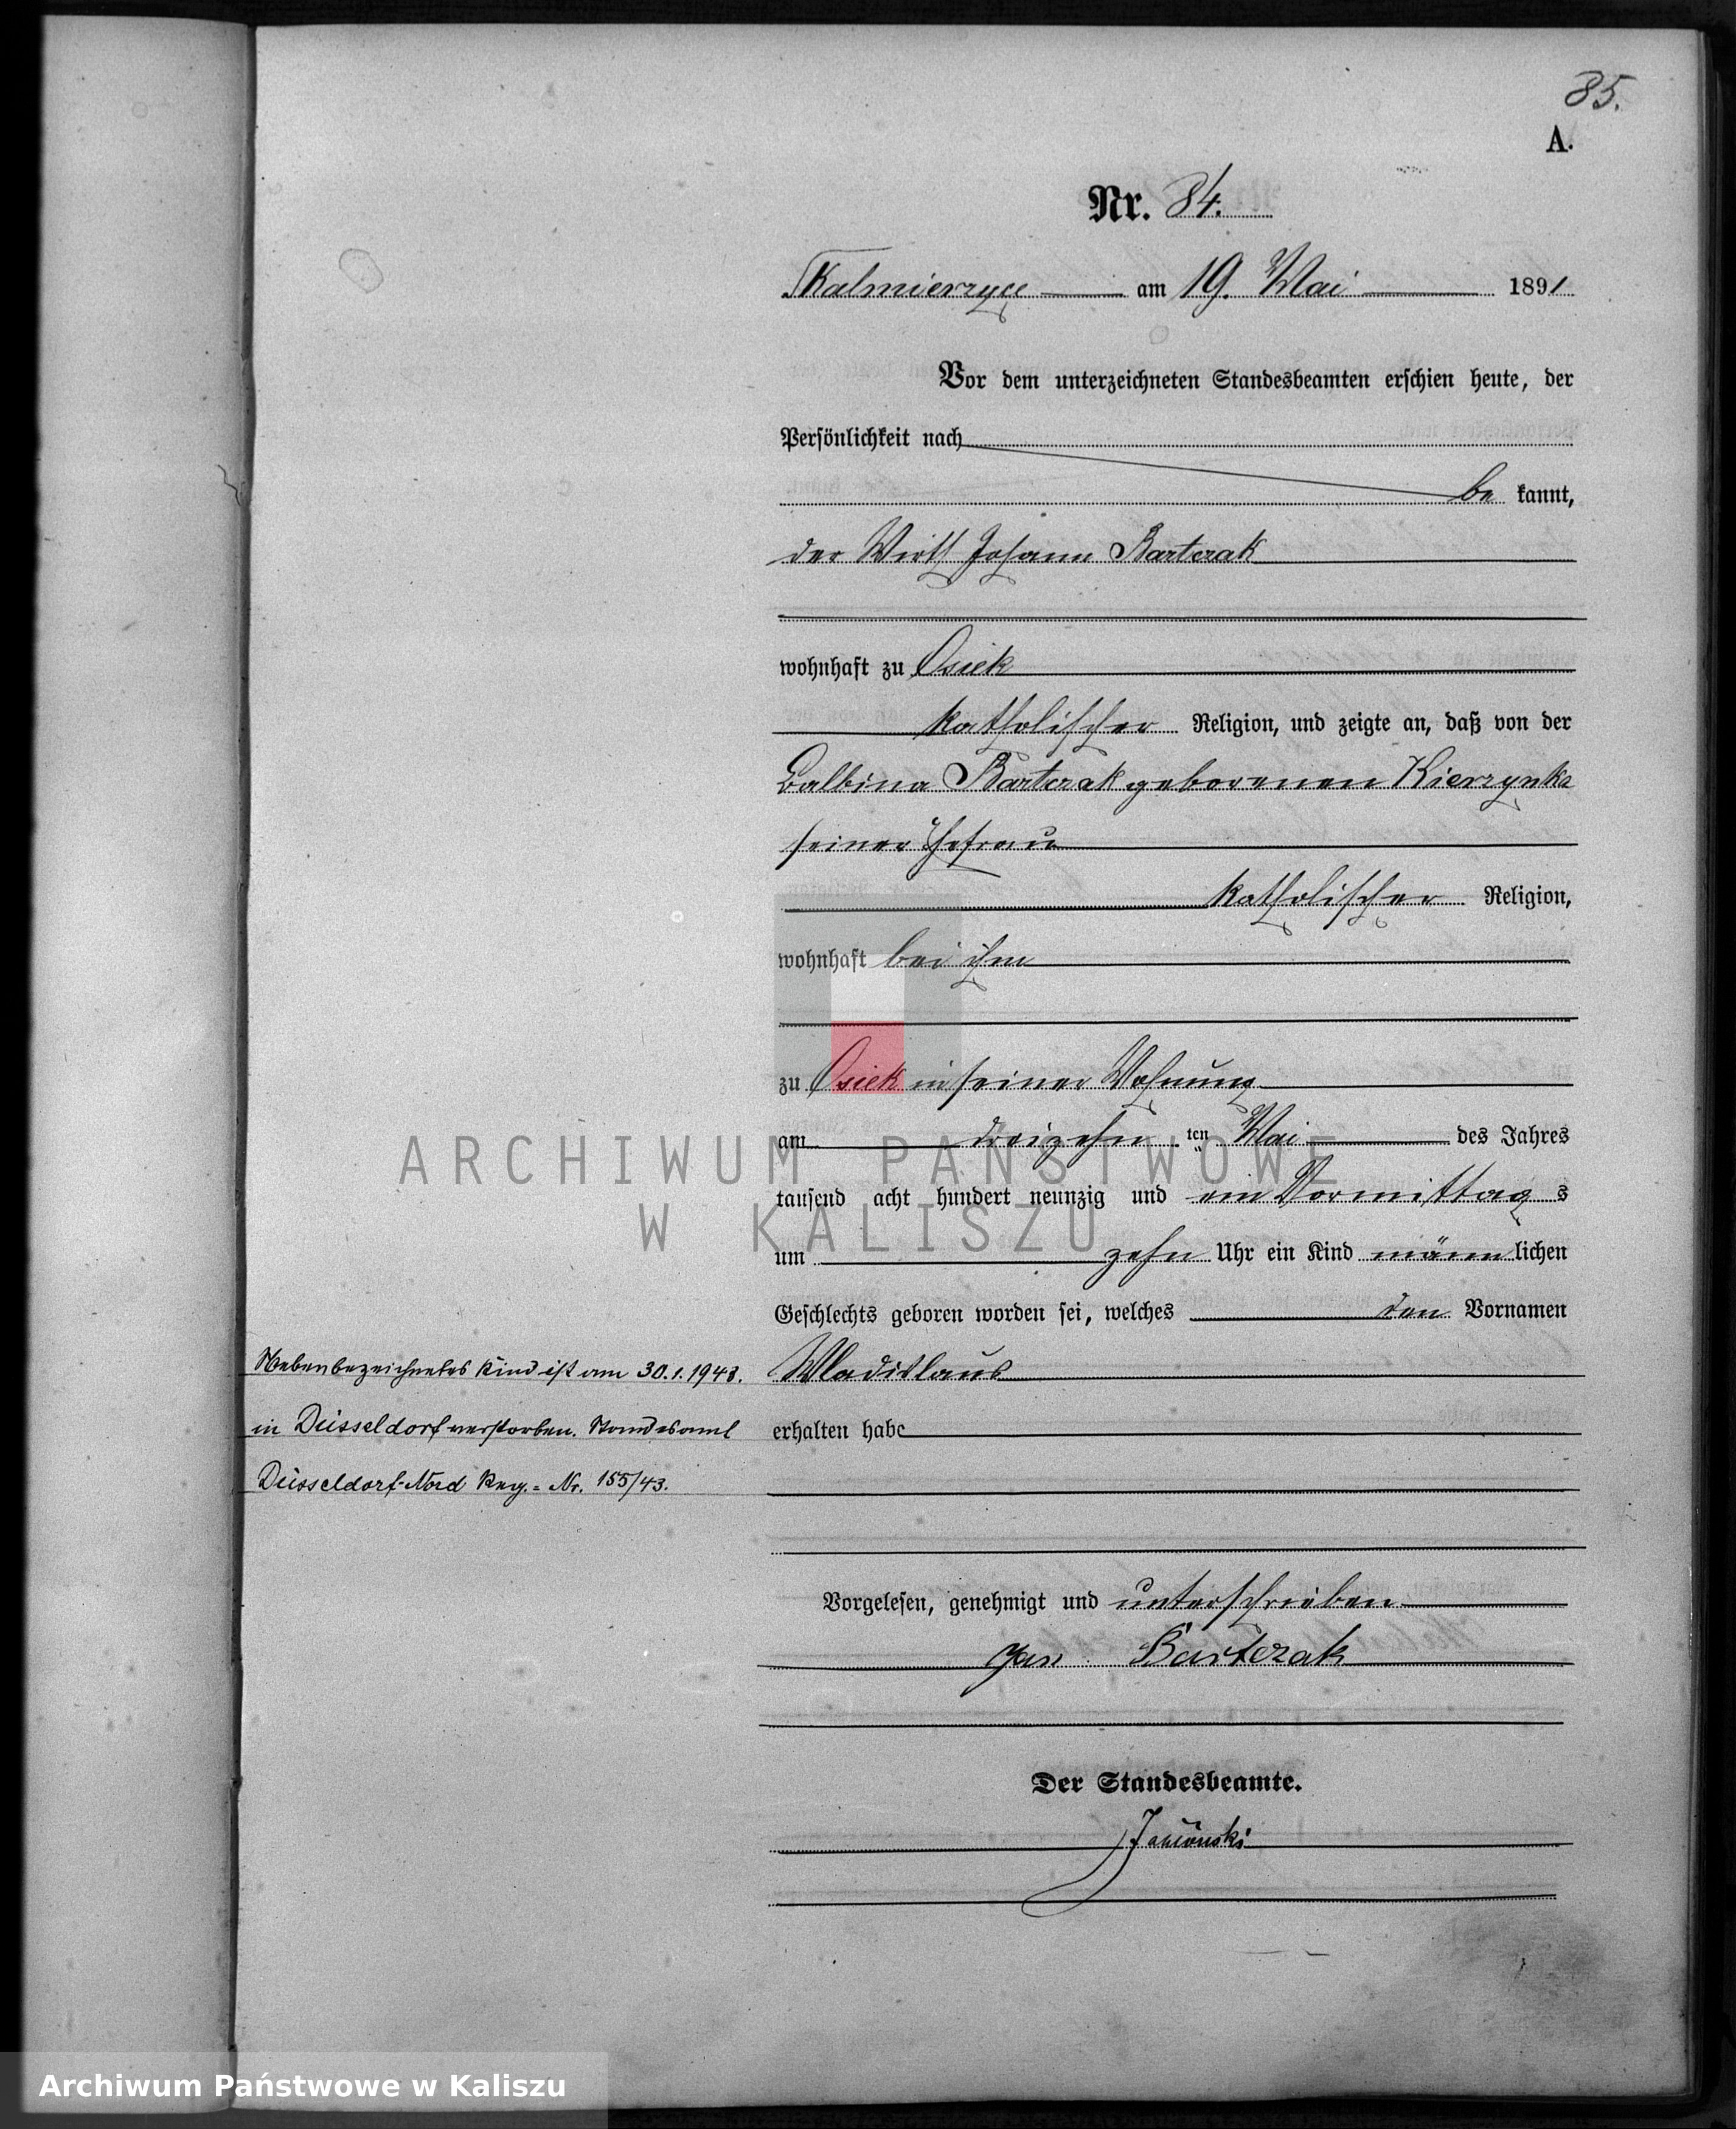 85.
A.
Nr. 84.
Skalmierzyce am 19. Mai 1891
Vor dem unterzeichneten Standesbeamten erschien heute, der
Persönlichkeit nach
be kannt,
der Wirth Johann Bartczak
wohnhaft zu Osiek
katholischer Religion, und zeigte an, daß von der
Balbina Bartczak geborenen Kierzynka
seiner Ehefrau
katholischer Religion,
wohnhaft bei ihm
zu Osiek in seiner Wohnung
am dreizehn ten Mai des Jahres
ARCHIWUM PAŃSTWOWE
tausend acht hundert neunzig und ein Vormittag s
W KALISZU
um zehn Uhr ein Kind männ lichen
Geschlechts geboren worden sei, welches den Vornamen
Wladislaus
erhalten habe
Nebenbezeichnetes Kind ist am 30.1.1943.
in Düsseldorf verstorben. Standesamt
Düsseldorf-Nord Reg.-Nr. 155/43.
Vorgelesen, genehmigt und unterschrieben
Jan Bartczak
Der Standesbeamte.
Archiwum Państwowe w Kaliszu